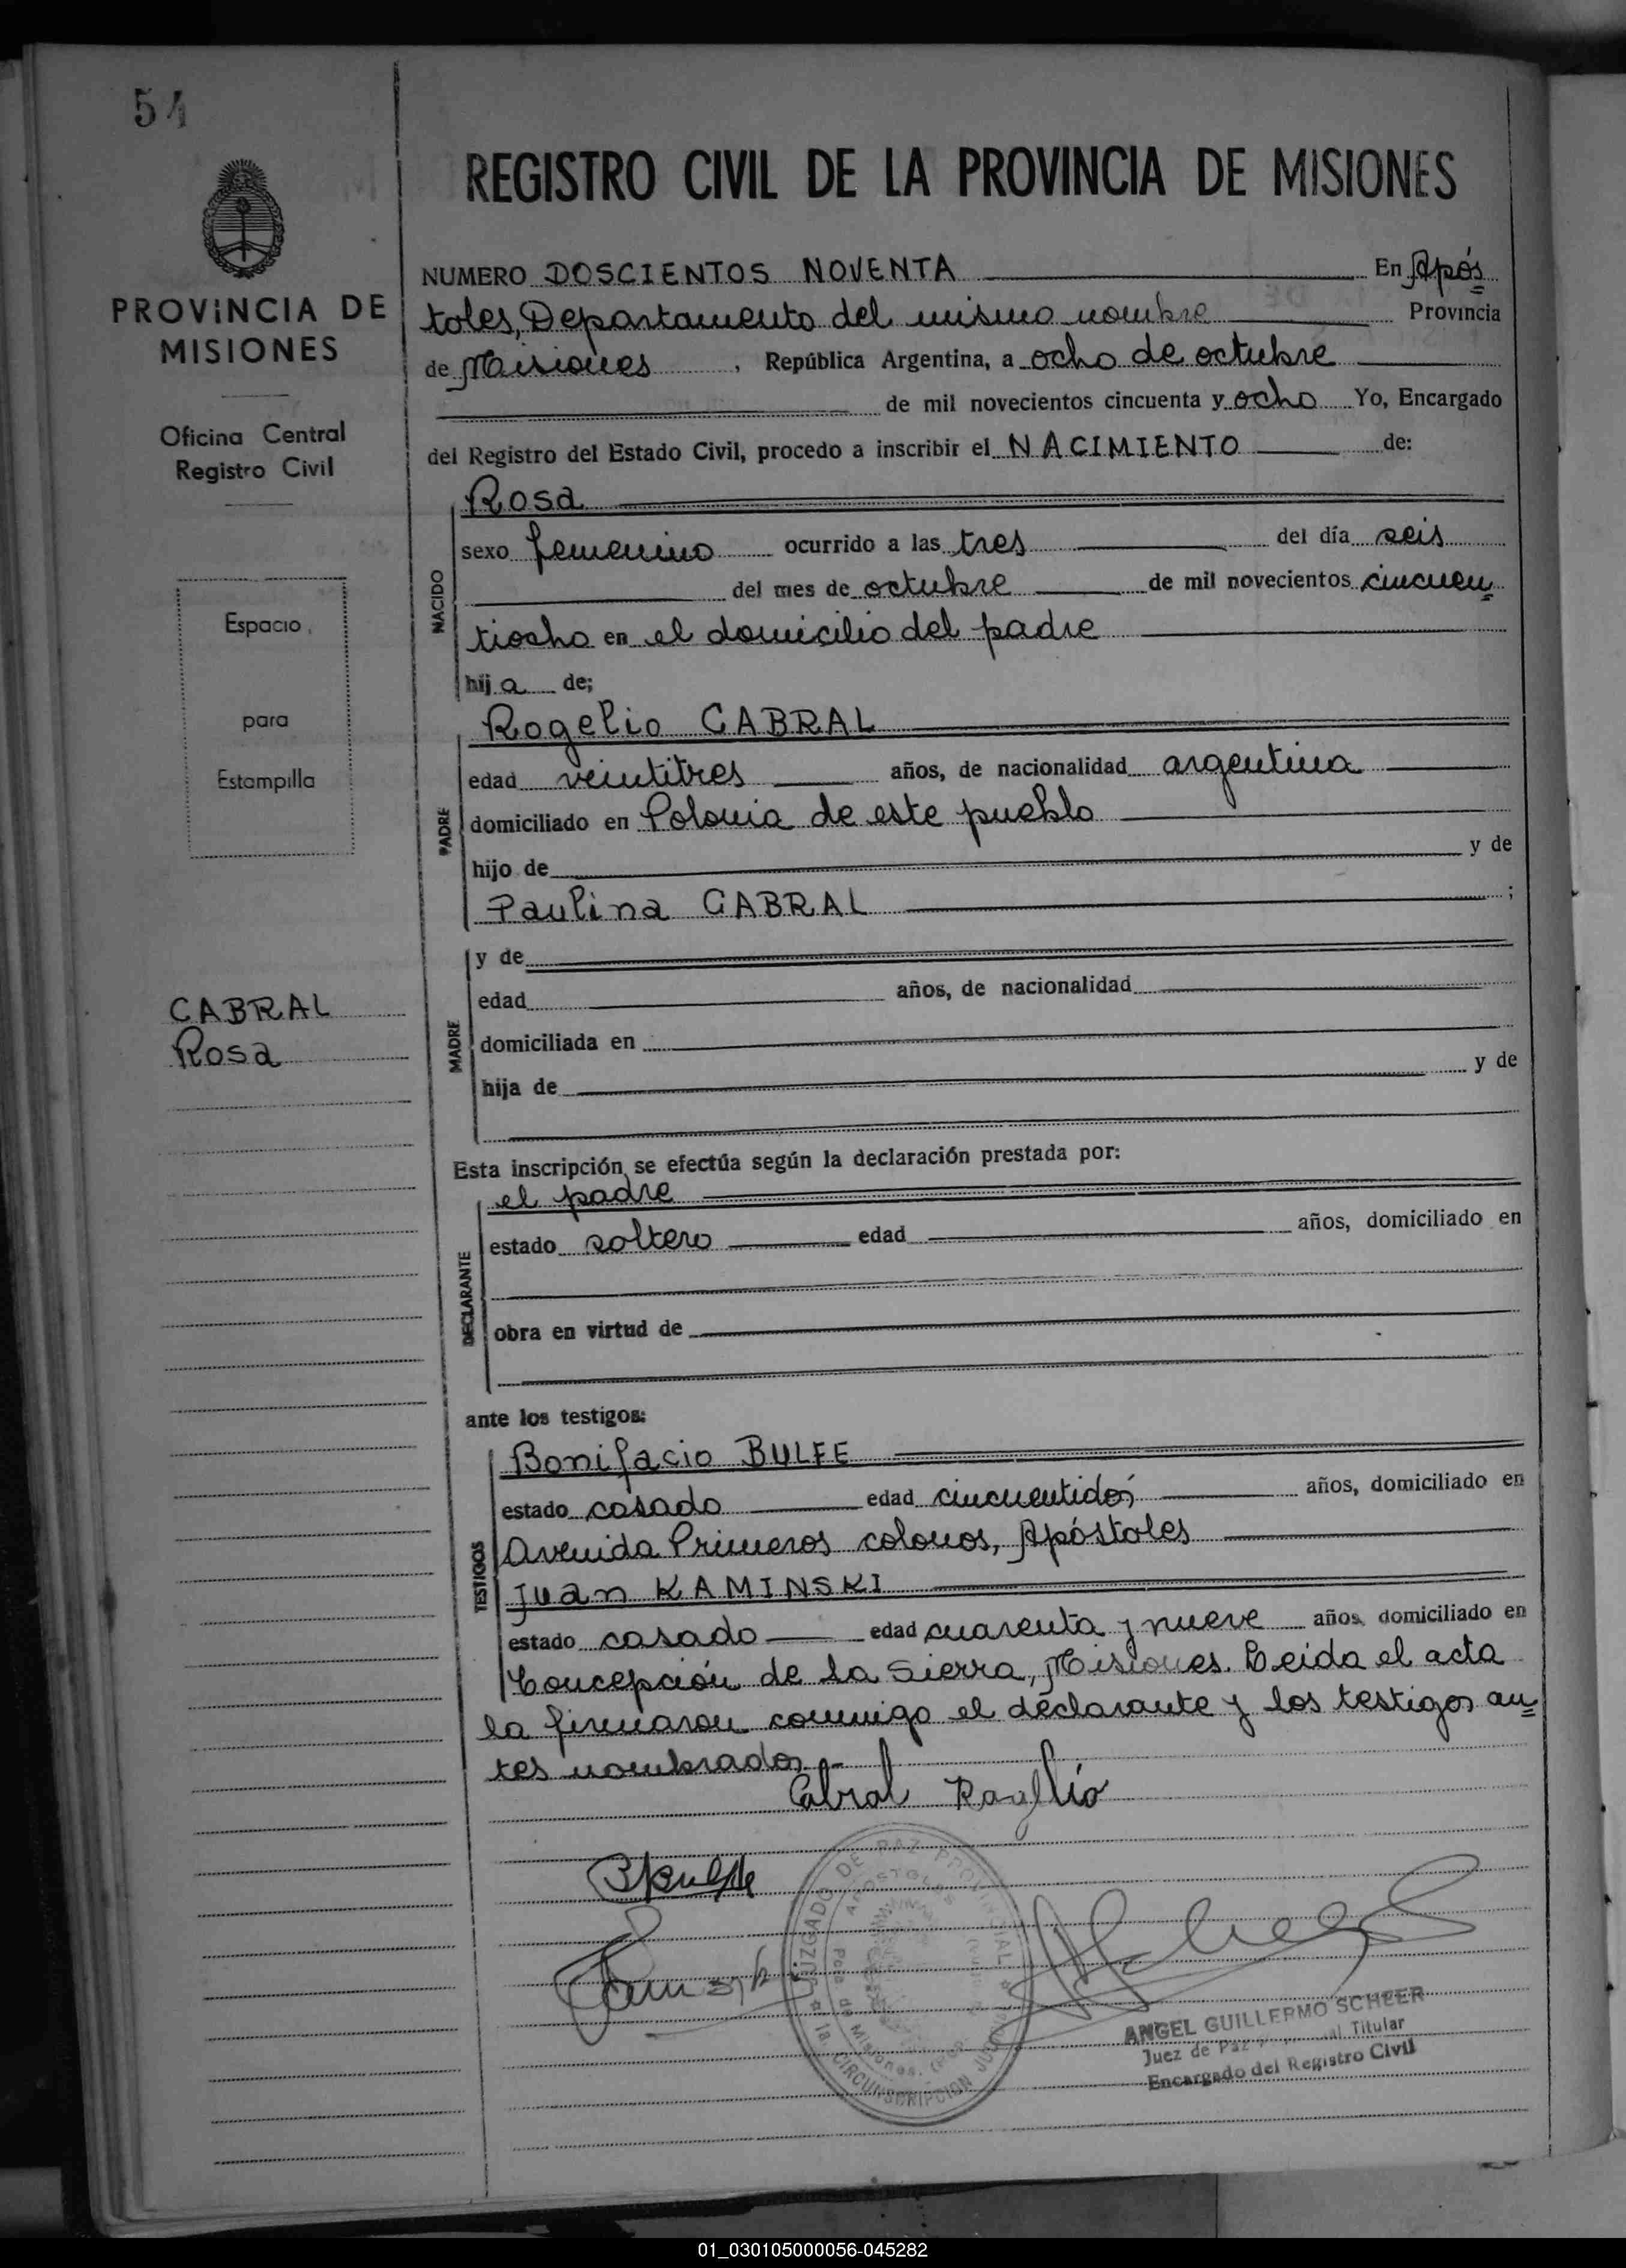 54
PROVINCIA DE
MISIONES
Oficina Central
Registro Civil
Espacio
para
Estampilla
CABRAL
Rosa
REGISTRO CIVIL DE LA PROVINCIA DE MISIONES
NUMERO DOSCIENTOS NOVENTA En Após
toles, Departamento del mismo nombre Provincia
de Misiones, República Argentina, a ocho de octubre
de mil novecientos cincuenta y ocho Yo, Encargado
del Registro del Estado Civil, procedo a inscribir el NACIMIENTO de:
NACIDO
Rosa
sexo femenino ocurrido a las tres del día seis
del mes de octubre de mil novecientos cincuen
tiocho en el domicilio del padre
hija de;
PADRE
Rogelio CABRAL
edad veintitres años, de nacionalidad argentina
domiciliado en Colonia de este pueblo
hijo de y de
Paulina CABRAL ;
MADRE
y de
edad años, de nacionalidad
domiciliada en
hija de y de
Esta inscripción se efectúa según la declaración prestada por:
DECLARANTE
el padre
estado soltero edad años, domiciliado en
obra en virtud de
ante los testigos:
TESTIGOS
Bonifacio BULFE
estado casado edad cincuentidós años, domiciliado en
Avenida Primeros colonos, Apóstoles
Juan KAMINSKI
estado casado edad cuarenta y nueve años, domiciliado en
Concepción de la Sierra, Misiones. Leida el acta
la firmaron conmigo el declarante y los testigos an
tes nombrados.-
Cabral Rogelio
JUZGADO DE PAZ PROVINCIAL
APOSTOLES
Pcia. de Misiones
1a. CIRCUNSCRIPCION JUDICIAL
ANGEL GUILLERMO SCHEER
Juez de Paz Titular
Encargado del Registro Civil
01_030105000056-045282